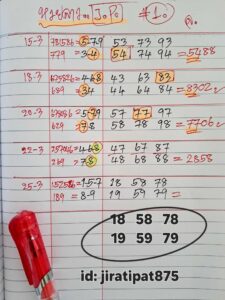 หวยลาว.. J.P. #1.
15-3 781586=⑤79 53 73 93
779 =3-4 54 74 94 = 5488
18-3 625826=468 43 63 83
689 =34 44 64 84 = 8302✓
20-3 =579 57 77 97
629 =78 58 78 98 = 7706✓
22-3 257026=468 47 67 87
269 =78 48 68 88 = 2858
25-3 152586=157 18 58 78
189 =8-9 19 59 79 =
18 58 78
19 59 79
id: jiratipat875